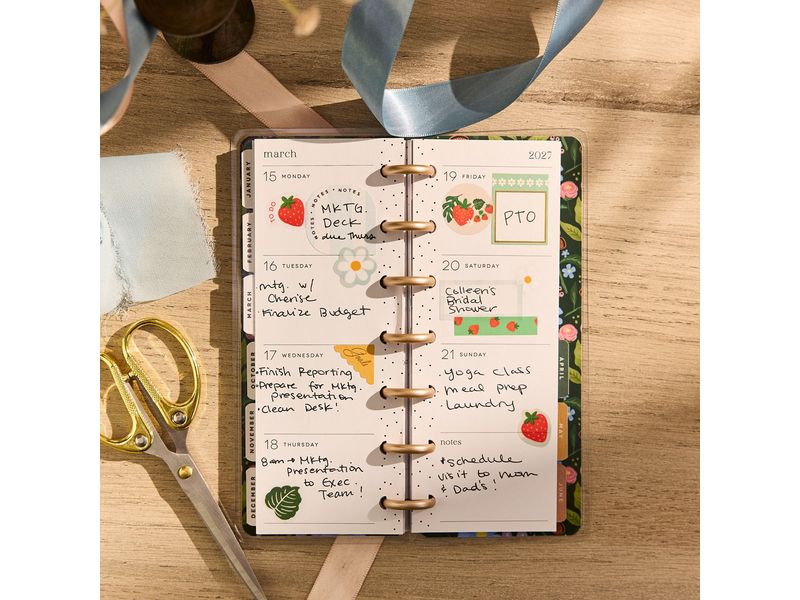 march
15 MONDAY
TO DO
NOTES • NOTES • NOTES • NOTES
MKTG
Deck
due Thurs
16 TUESDAY
mtg. w/
Cherise
•Finalize Budget
17 WEDNESDAY
Goals
•Finish Reporting
•Prepare for Mktg.
Presentation
•Clean Desk!
18 THURSDAY
8am → Mktg.
Presentation
to Exec
Team!
2027
19 FRIDAY
PTO
20 SATURDAY
Colleen's
Bridal
Shower
21 SUNDAY
yoga class
meal prep
Laundry
notes
*Schedule
visit to Mom
& Dad's!
JANUARY
FEBRUARY
MARCH
OCTOBER
NOVEMBER
DECEMBER
APRIL
MAY
JUNE